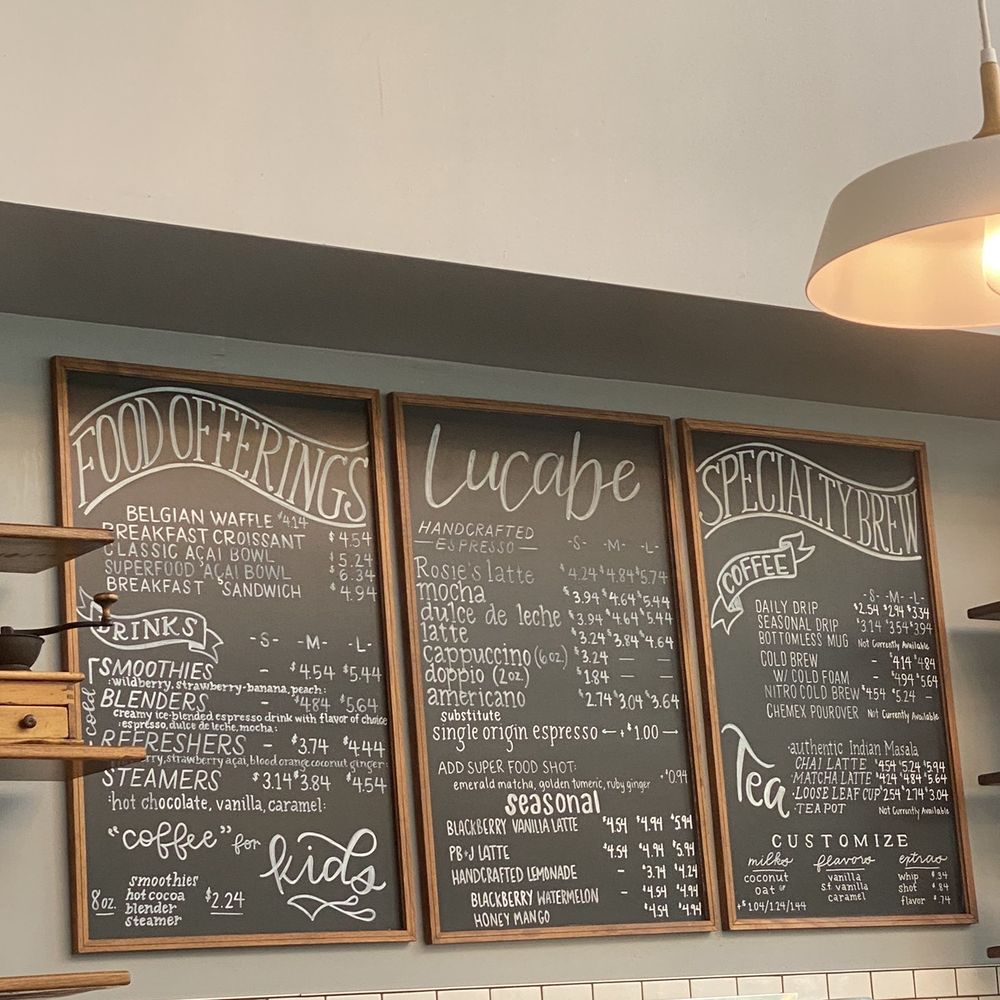 FOOD OFFERINGS
BELGIAN WAFFLE $4.14
BREAKFAST CROISSANT $4.54
CLASSIC AÇAI BOWL $5.24
SUPERFOOD AÇAI BOWL $6.34
BREAKFAST SANDWICH $4.94
DRINKS -S- -M- -L-
cold
SMOOTHIES - $4.54 $5.44
:wildberry, strawberry-banana, peach:
BLENDERS - $4.84 $5.64
creamy ice-blended espresso drink with flavor of choice
:espresso, dulce de leche, mocha:
REFRESHERS - $3.74 $4.44
strawberry açai, blood orange, coconut ginger:
STEAMERS $3.14 $3.84 $4.54
:hot chocolate, vanilla, caramel:
"coffee" for kids
8oz.
smoothies
hot cocoa
blender
steamer
$2.24
Lucabe
HANDCRAFTED
—ESPRESSO— -S- -M- -L-
Rosie's latte $4.24 $4.84 $5.74
mocha $3.94 $4.64 $5.44
dulce de leche $3.94 $4.64 $5.44
latte $3.24 $3.84 $4.64
cappuccino (6oz) $3.24 — —
doppio (2oz) $1.84 — —
americano $2.74 $3.04 $3.64
substitute
single origin espresso ← +$1.00 →
ADD SUPER FOOD SHOT:
emerald matcha, golden tumeric, ruby ginger +$0.94
seasonal
BLACKBERRY VANILLA LATTE $4.54 $4.94 $5.94
PB+J LATTE $4.54 $4.94 $5.94
HANDCRAFTED LEMONADE - $3.74 $4.24
BLACKBERRY WATERMELON - $4.54 $4.94
HONEY MANGO - $4.54 $4.94
SPECIALTY BREW
COFFEE
-S- -M- -L-
DAILY DRIP $2.54 $2.94 $3.34
SEASONAL DRIP $3.14 $3.54 $3.94
BOTTOMLESS MUG Not Currently Available
COLD BREW - $4.14 $4.84
W/ COLD FOAM - $4.94 $5.64
NITRO COLD BREW $4.54 $5.24 -
CHEMEX POUROVER Not Currently Available
Tea
·authentic Indian Masala
CHAI LATTE $4.54 $5.24 $5.94
·MATCHA LATTE $4.24 $4.84 $5.64
·LOOSE LEAF CUP $2.54 $2.74 $3.04
·TEAPOT Not Currently Available
CUSTOMIZE
milks flavors extras
coconut vanilla whip $.34
oat s.f. vanilla shot $.84
caramel flavor $.74
+$1.04/1.24/1.44